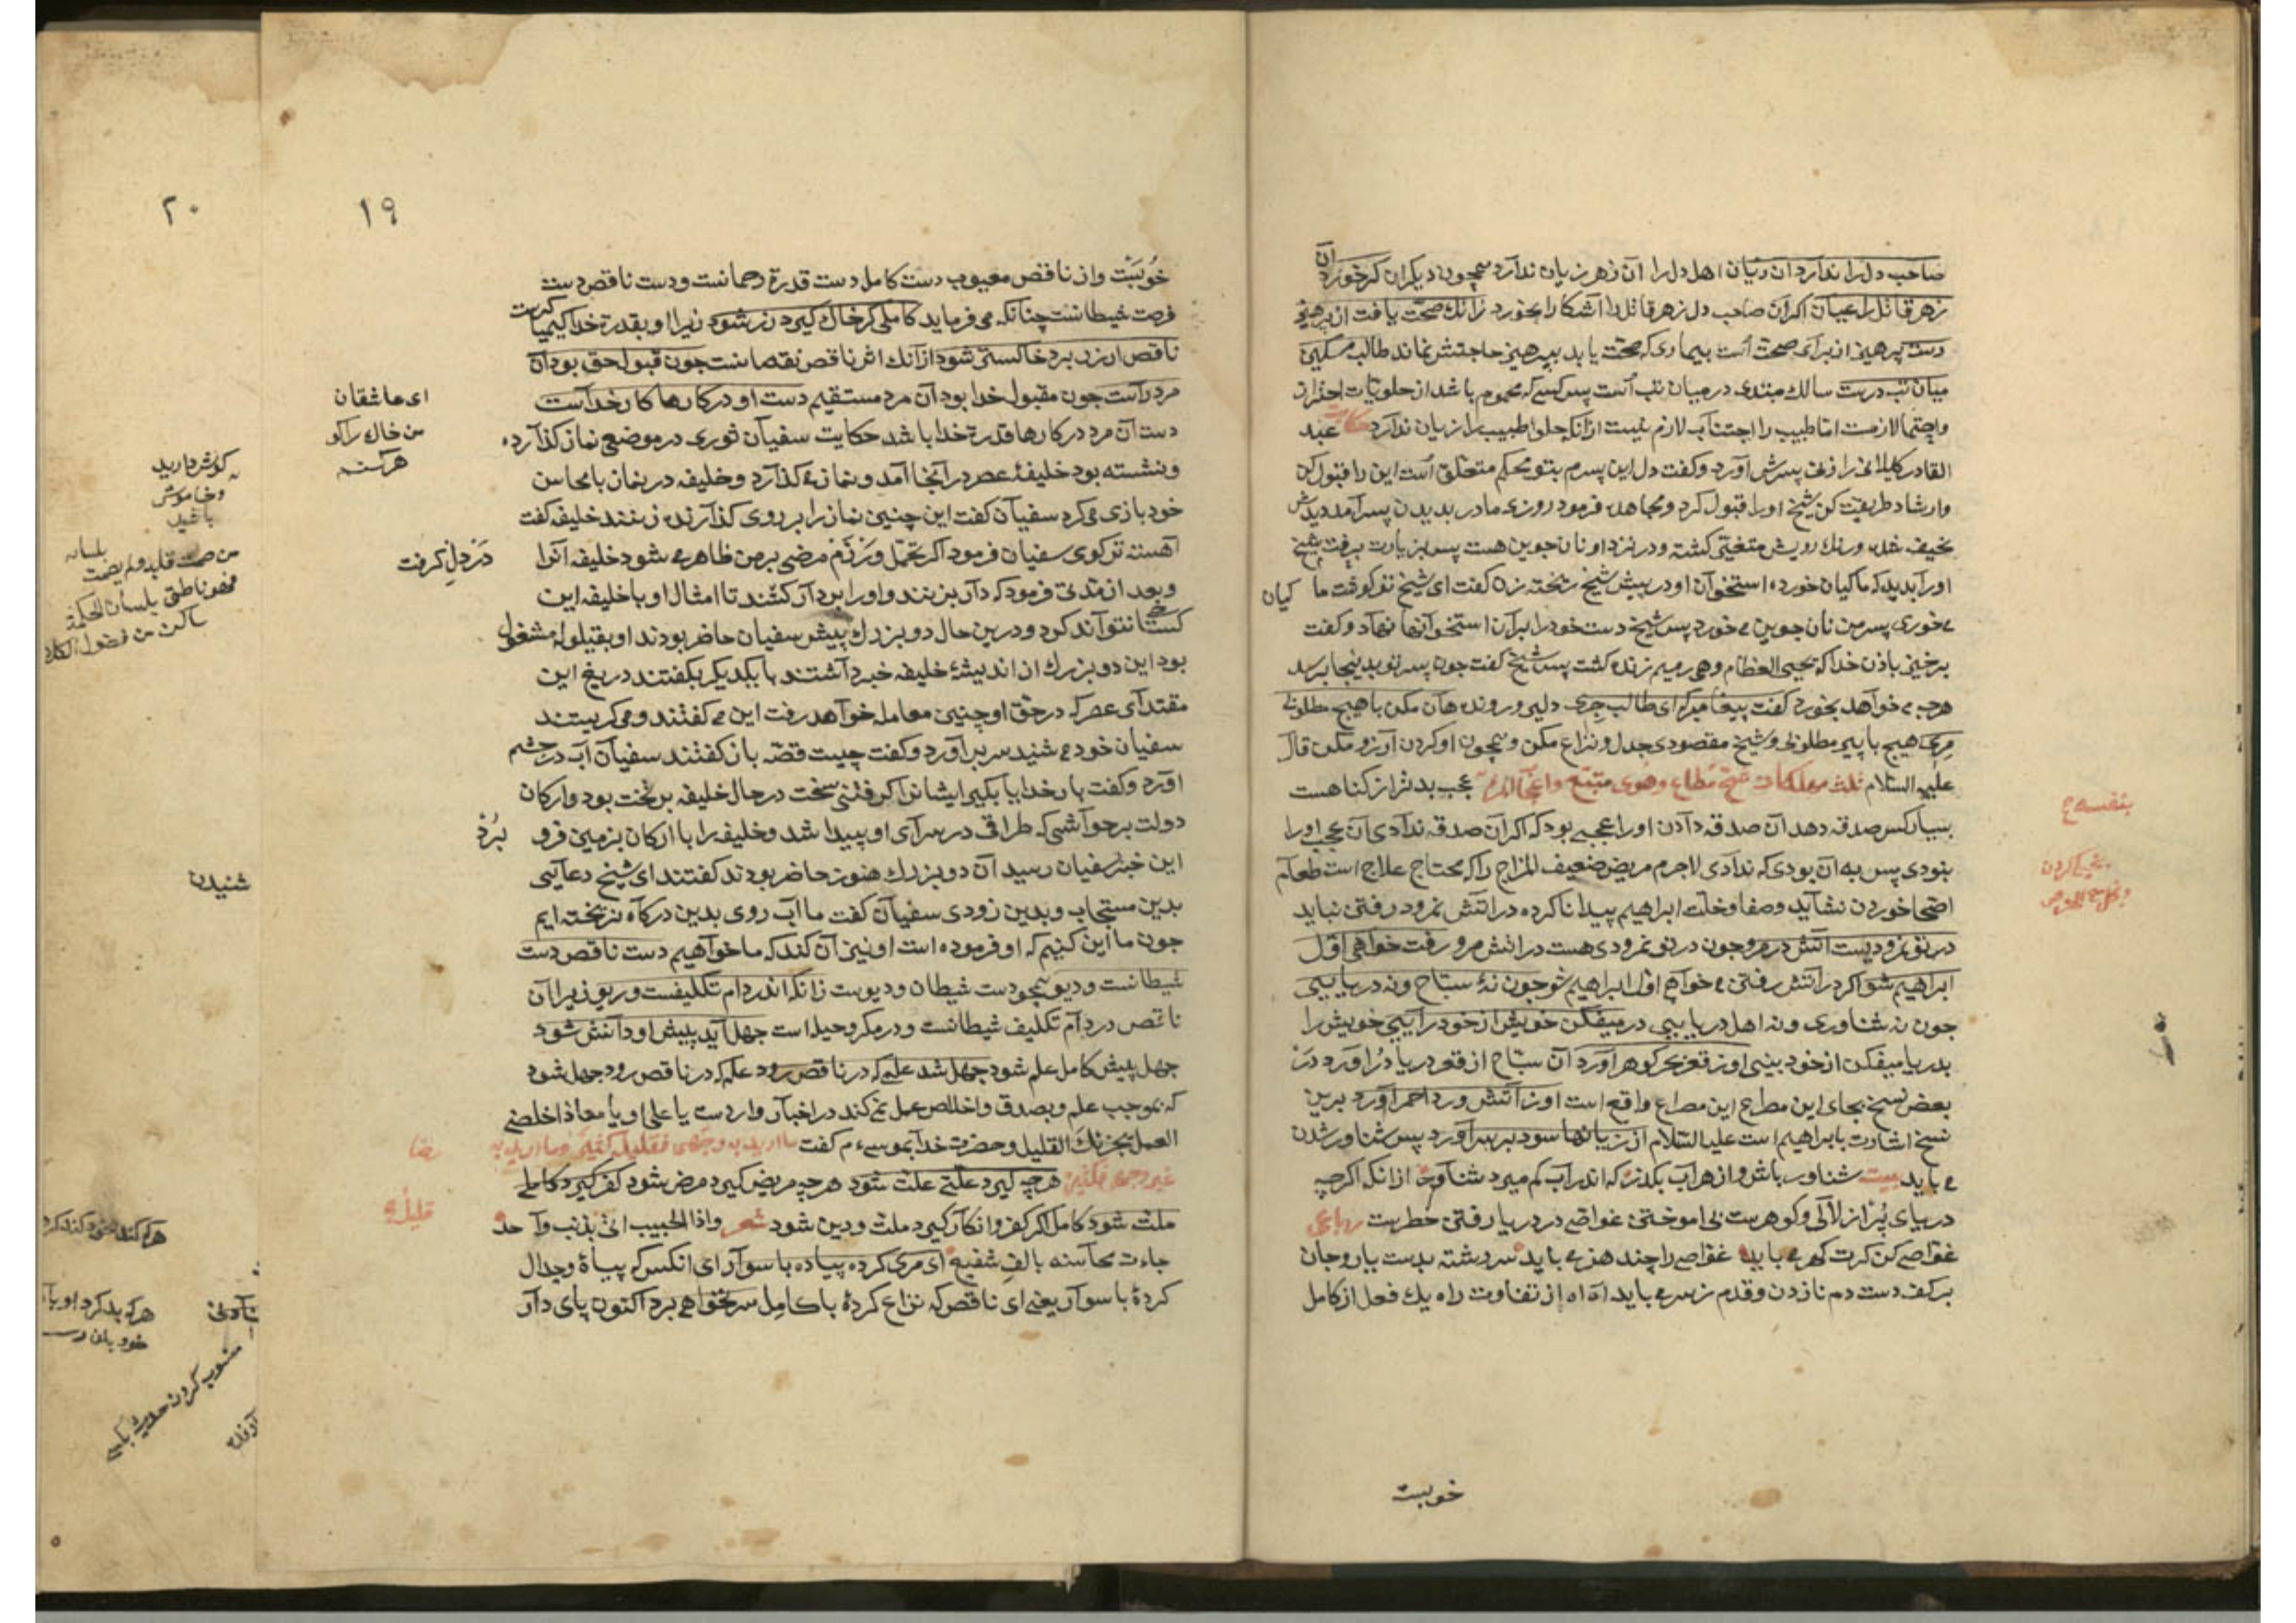 صاحب دل را ندارد آن زیان اهل دل را آن زهر زیان ندارد همچون دیگران کر خورد آن
زهر قاتل را عیان اکر آن صاحب دل زهر قاتل را آشکارا بخورد زانك صحت یافت از پرهیز
رست پرهیز از برای صحت است بیماری که صحت یابد بپرهیز حاجتش نماند طالب مسکین
میان تب درست سالك مبتدی در میان تب است پس کسی که محموم باشد از حلویات احتراز
واحتما لازمست اما طبیب را اجتناب لازم نیست از آنکه حلوا طبیب را زیان ندارد حکایت عبد
القادر کیلانی را زنی پسرش آورد وکفت دل این پسرم بتو محکم متعلق است این را قبول کن
وارشاد طریقت کن شیخ او را قبول کرد ومجاهده فرمود روزی مادر بدیدن پسر آمد دیدش
نحیف شده ورنك رویش متغیر کشته ودر نزد او نان جوین هست پس بزیارت برفت شیخ
اورا بدید که ماکیان خورده استخوان او در پیش شیخ ریخته زن کفت ای شیخ تو کوشت ما کیان
می خوری پسر من نان جوین می خورد پس شیخ دست خود را بر آن استخوانها نهاد وکفت
برخیز باذن خدا که یحیی العظام وهی رمیم زنده کشت پس شیخ کفت چون پسر تو بدینجا برسد
هرچه می خواهد بخورد کفت پیغامبر که ای طالب جری دلیر ورونده هان مکن با هیچ مطلوبی
مری هیچ با پیر مطلوبی وشیخ مقصودی جدل ونزاع مکن وهمچون او کردن آرزو مکن قال
علیه السلام ثلث مهلکات شح مطاع وهوی متبع واعجاب المرء عجب بدتر از کناهست
بنفسه
بسیار کس صدقه دهد آن صدقه دادن او را عجبی بود که اکر آن صدقه ندادی آن عجب او را
نبودی پس به آن بودی که ندادی لاجرم مریض ضعیف المزاج را که محتاج علاج است طعام
اصحا خوردن نشاید وصفا وخلت ابراهیم پیدا ناکرده در آتش نمرود رفتن نباید
در تو نمرودیست آتش در مرو چون در تو نمرودی هست در آتش مرو رفت خواهی اول
ابراهیم شو اکر در آتش رفتن می خواهی اول ابراهیم شو چون نۀ سباح ونه دریایی
چون نه شناوری ونه اهل دریایی در میفکن خویش از خود رایی خویش را
بدریا میفکن از خود بینی او ز قعر بحر کوهر آورد آن سباح از قعر دریا در آورد در
بعض نسخ بجای این مصراع این مصراع واقع است او ز آتش ورد احمر آورد برین
نسخ اشارت بابراهیم است علیه السلام از زیانها سود بر سر آورد پس شناور شدن
می باید بیت شناور باش واز هر آب بکذر که اندر آب کم میرد شناور از انکه اکرچه
دریای پر از لآلی وکوهرست نی اموختن غواصی در دریا رفتن خطرست رباعی
غواصی کن کرت کهر می باید غواصی را چند هنر می باید سر رشته بدست یار وجان
بر کف دست دم نازدن وقدم ز سر می باید آه آه از تفاوت راه یك فعل از کامل
خوبست
١٩
خوبست واز ناقص معیوب دست کامل دست قدرة رحمانست ودست ناقص دست
شیطانست چنانکه می فرماید کاملی کر خاك کیرد زر شود زیرا او بقدرة خدا کیمیا کرست
ناقص ار زر برد خاکستر شود از آنك اثر ناقص نقصانست چون قبول حق بود آن
مرد راست چون مقبول خدا بود آن مرد مستقیم دست او در کارها کار خداست
ای عاشقان
من خاك را کو
دست آن مرد در کارها قدرة خدا باشد حکایت سفیان ثوری در موضعی نماز کذارده
ونشسته بود خلیفۀ عصر در آنجا آمد ونماز می کذارد وخلیفه در نماز با محاسن
خود بازی می کرد سفیان کفت این چنین نماز را بر روی کذارنده زنند خلیفه کفت
آهسته تر کوی سفیان فرمود اکر تحمل ورزم مرضی بر من ظاهر می شود خلیفه آنرا
در دل کرفت
وبعد از مدتی فرمود که دار بزنند واو را بر دار کشند تا امثال او با خلیفه این
کستاخی نتواند کرد ودرین حال دو بزرك پیش سفیان حاضر بودند او بقیلوله مشغول
بود این دو بزرك از اندیشۀ خلیفه خبر داشتند با یکدیکر بکفتند دریغ این
مقتدای عصر که در حق او چنین معامله خواهد رفت این می کفتند ومی کریستند
سفیان خود می شنید سر بر آورد وکفت چیست قصه باز کفتند سفیان آب در چشم
آورد وکفت بار خدایا بکیر ایشانرا کرفتنی سخت در حال خلیفه بر تخت بود وارکان
دولت بر حواشی که طراقی در سرای او پیدا شد وخلیفه را با ارکان بزمین فرو برد
این خبر بسفیان رسید آن دو بزرك هنوز حاضر بودند کفتند ای شیخ دعایی
بدین مستجاب وبدین زودی سفیان کفت ما آب روی بدین درکاه نریخته ایم
چون ما این کنیم که او فرموده است او نیز آن کند که ما خواهیم دست ناقص دست
شیطانست ودیو همچو دست شیطان ودیوست زانکه اندر دام تکلیفست وریو زیرا آن
ناقص در دام تکلیف شیطانست ودر مکر وحیله است جهل آید پیش او دانش شود
جهل پیش کامل علم شود جهل شد علمی که در ناقص رود علم که در ناقص رود جهل شود
که بموجب علم وبصدق واخلاص عمل نمی کند در اخبار واردست یا علی او یا معاذ اخلص
العمل یجزئك القلیل وحضرت خدا بموسی ع م کفت ما ارید به وجهی فقلیله کثیر وما ارید به
غیر وجهی فکثیره قلیل هرچه کیرد علتی علت شود هرچه مریض کیرد مرض شود کفر کیرد کاملی
ملت شود کامل اکر کفر وانکار کیرد ملت ودین شود شعر واذا الحبیب اتی بذنب واحد
جاءت محاسنه بالف شفیع ای مری کرده پیاده با سوار ای انکس که پیاۀ وجدال
کردۀ با سوار یعنی ای ناقص که نزاع کردۀ با کامل سر نخواهی برد اکنون پای دار
٢٠
کوش دارید
وخاموش
باشید
من صمت قلبه ولم یصمت لسانه
فهو ناطق بلسان الحکمة
ساکن من فضول الکلام
شنیدن
هرکه بد کرد او با
منسوب کردن حدیث بکسی